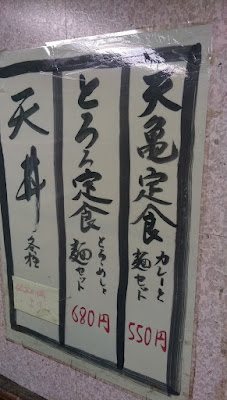 天亀定食
カレーと
麺セット
550円
とろろ定食
とろめしと
麺セット
680円
天丼
各種